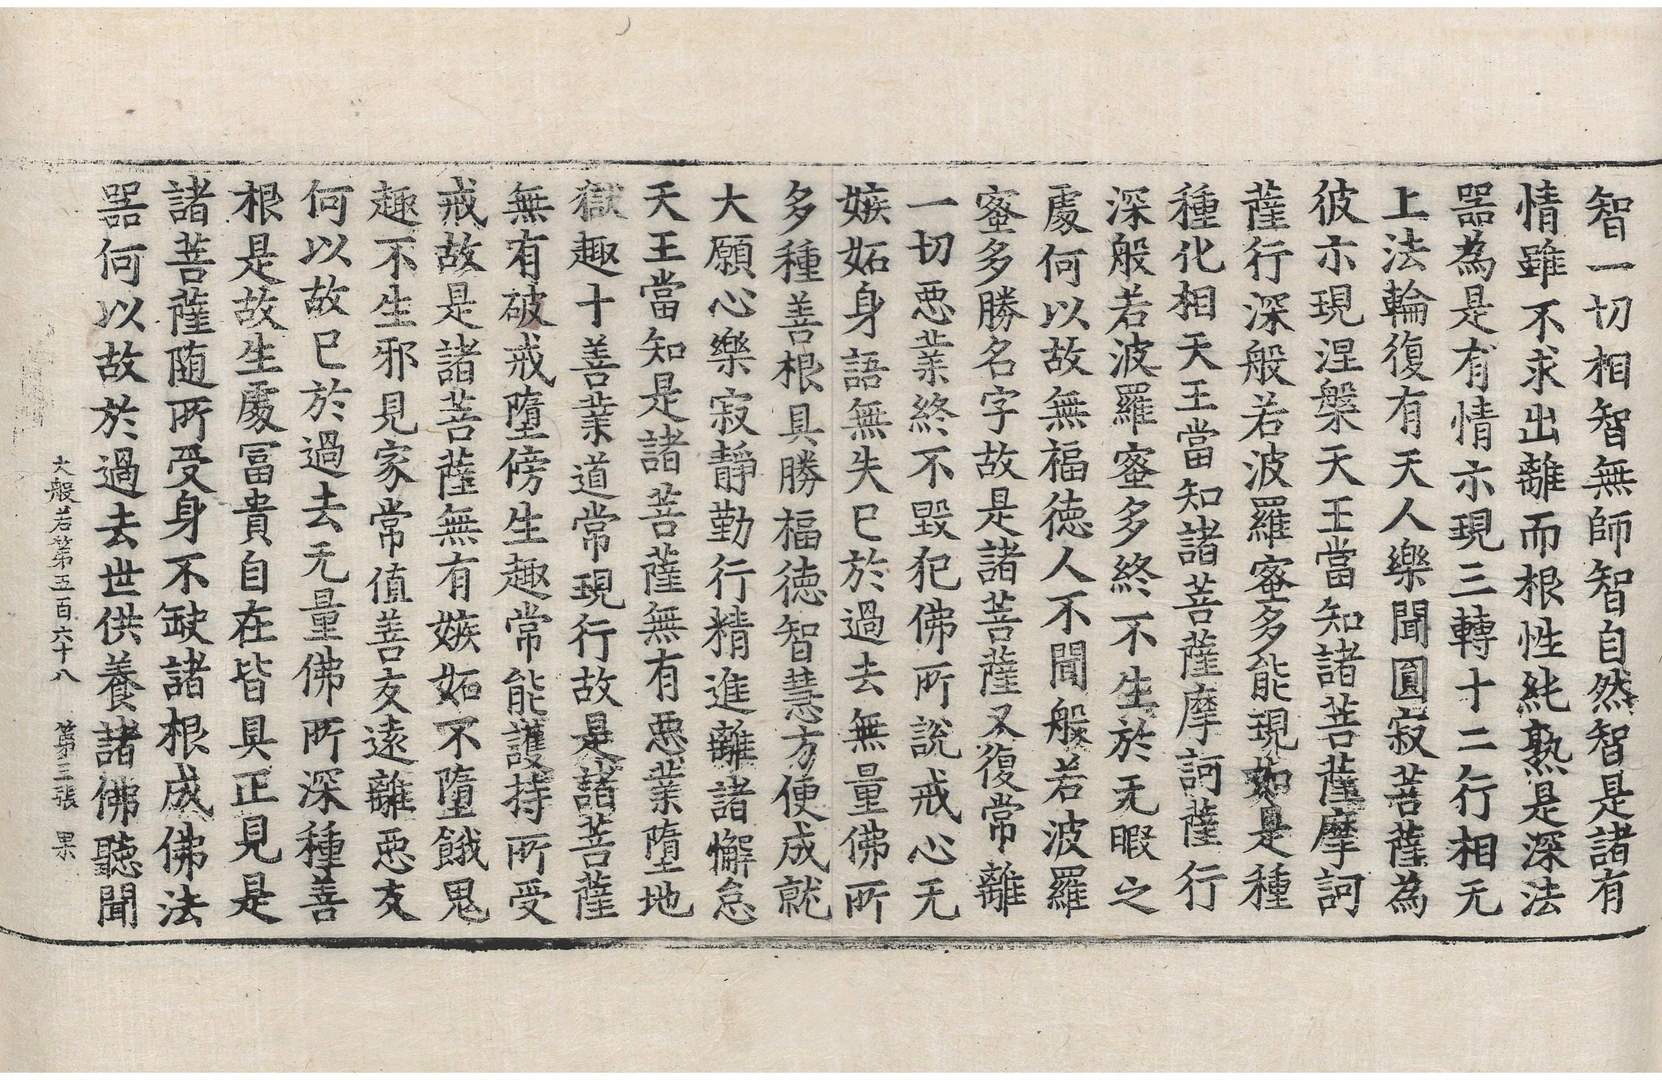 智一切相智無師智自然智是諸有
情雖不求出離而根性純熟是深法
器為是有情示現三轉十二行相无
上法輪復有天人樂聞圓寂菩薩為
彼示現涅槃天王當知諸菩薩摩訶
薩行深般若波羅蜜多能現如是種
種化相天王當知諸菩薩摩訶薩行
深般若波羅蜜多終不生於无暇之
處何以故無福德人不聞般若波羅
蜜多勝名字故是諸菩薩又復常離
一切惡業終不毀犯佛所說戒心无
嫉妬身語無失已於過去無量佛所
多種善根具勝福德智慧方便成就
大願心樂寂靜勤行精進離諸懈怠
天王當知是諸菩薩無有惡業墮地
獄趣十善業道常現行故是諸菩薩
無有破戒墮傍生趣常能護持所受
戒故是諸菩薩無有嫉妬不墮餓鬼
趣不生邪見家常值善友遠離惡友
何以故已於過去无量佛所深種善
根是故生處冨貴自在皆具正見是
諸菩薩随所受身不缺諸根成佛法
器何以故於過去世供養諸佛聽聞
大般若第五百六十八　第三張　果